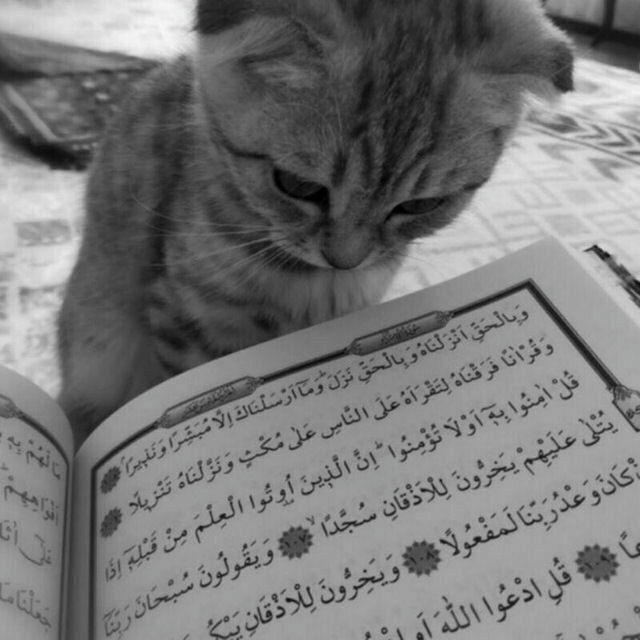 وَبِالْحَقِّ اَنْزَلْنَاهُ وَبِالْحَقِّ نَزَلَ وَمَٓا اَرْسَلْنَاكَ اِلَّا مُبَشِّرًا وَنَذِيرًا
وَقُرْاٰنًا فَرَقْنَاهُ لِتَقْرَاَهُ عَلَى النَّاسِ عَلٰى مُكْثٍ وَنَزَّلْنَاهُ تَنْزِيلًا
قُلْ اٰمِنُوا بِهٖٓ اَوْ لَا تُؤْمِنُوا اِنَّ الَّذِينَ اُوتُوا الْعِلْمَ مِنْ قَبْلِهٖٓ اِذَا
يُتْلٰى عَلَيْهِمْ يَخِرُّونَ لِلْاَذْقَانِ سُجَّدًا وَيَقُولُونَ سُبْحَانَ رَبِّنَٓا
كَانَ وَعْدُ رَبِّنَا لَمَفْعُولًا وَيَخِرُّونَ لِلْاَذْقَانِ
قُلِ ادْعُوا اللّٰهَ اَوِ